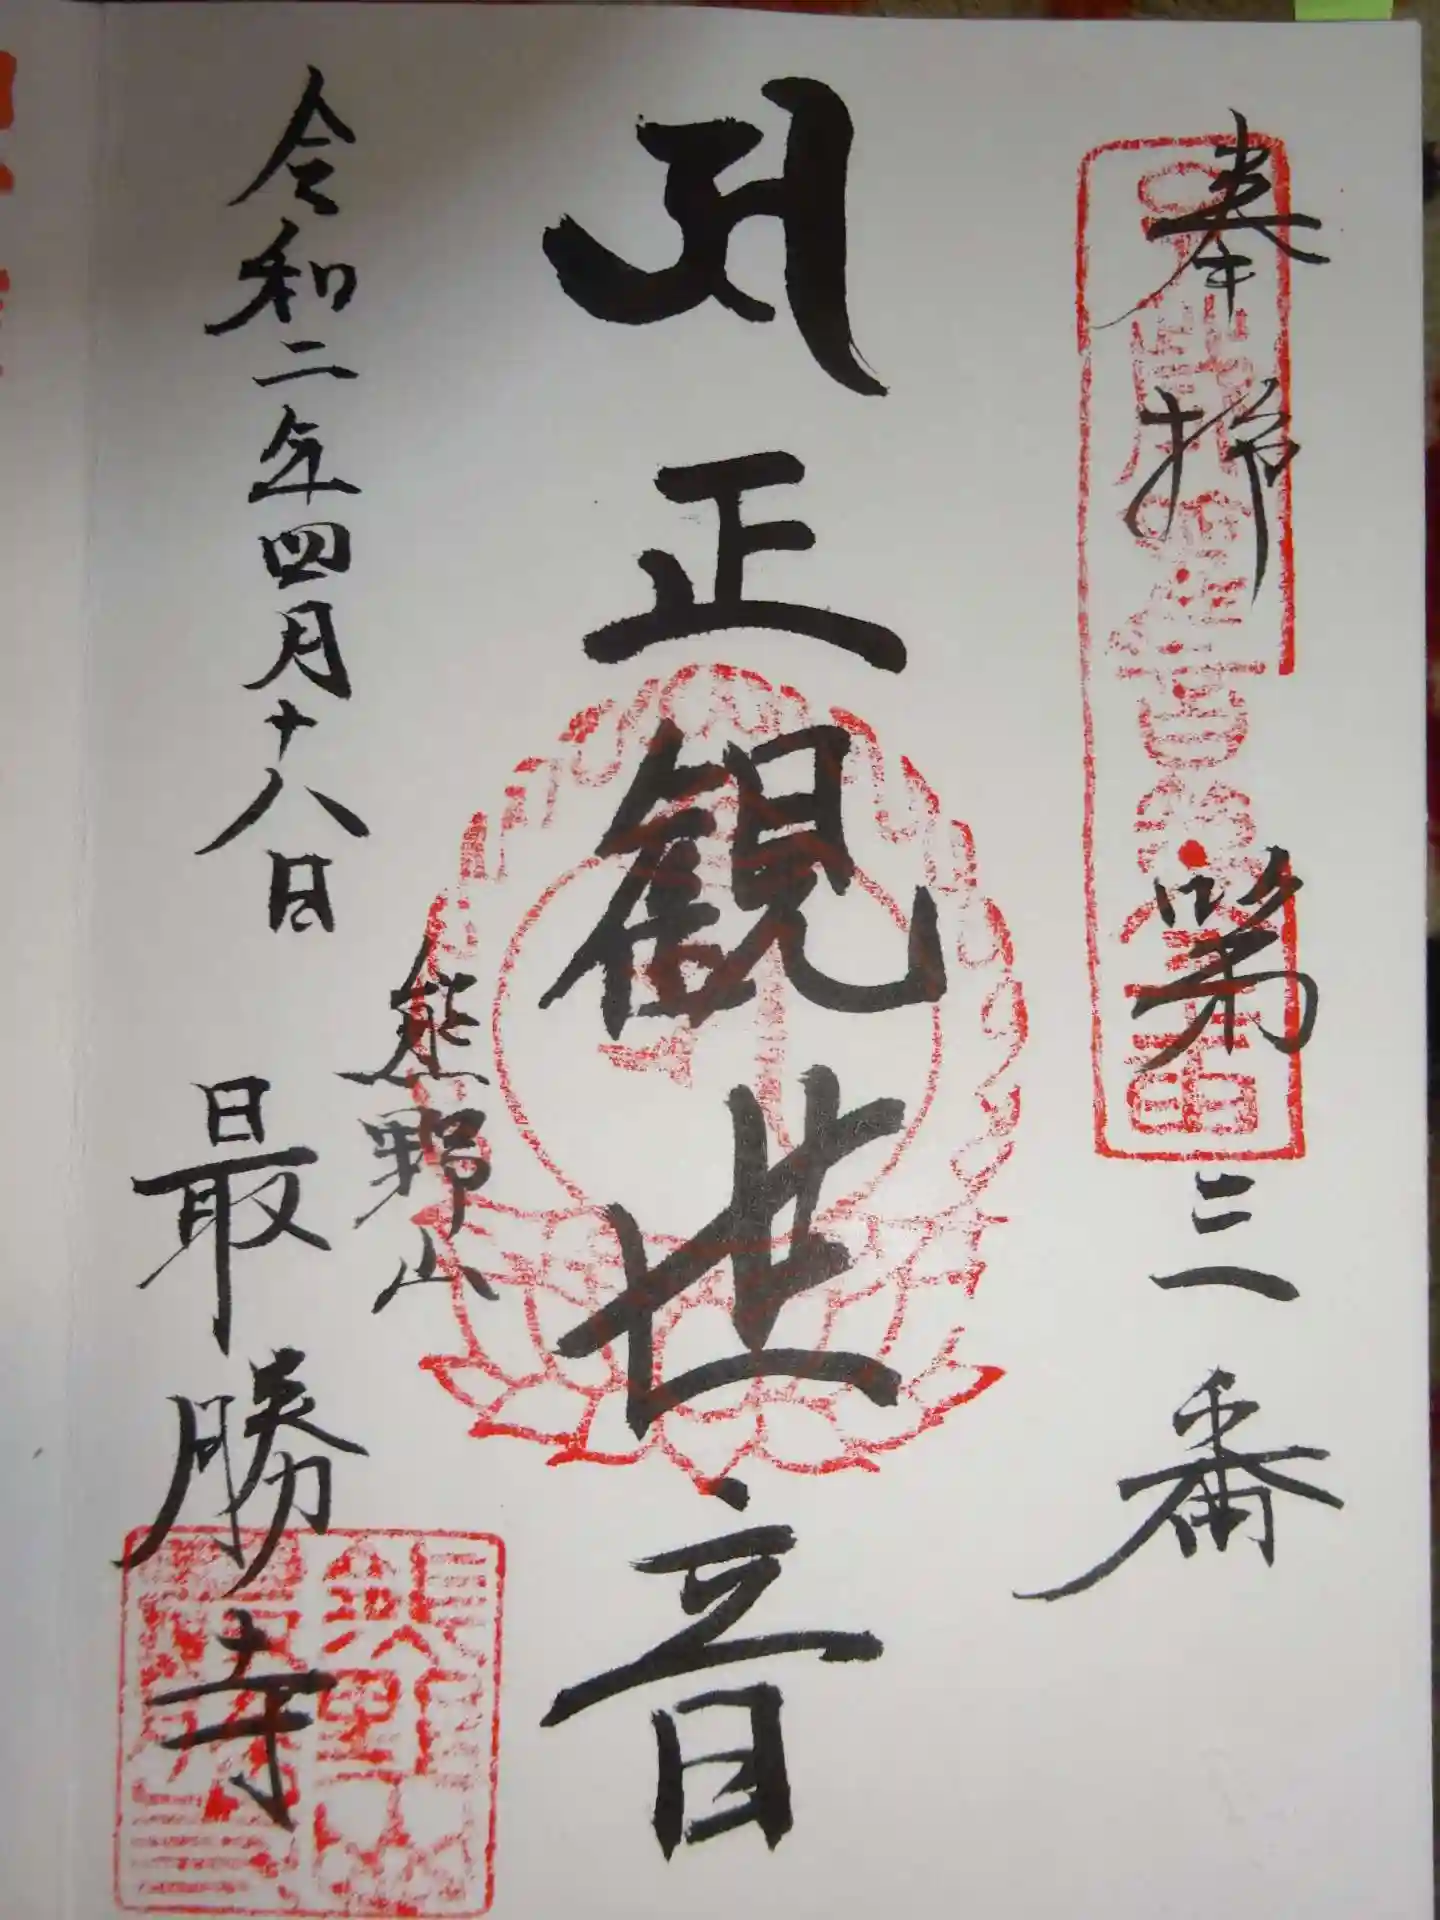 奉拝 第三番
正観世音
熊野山
令和二年四月十八日 最勝寺